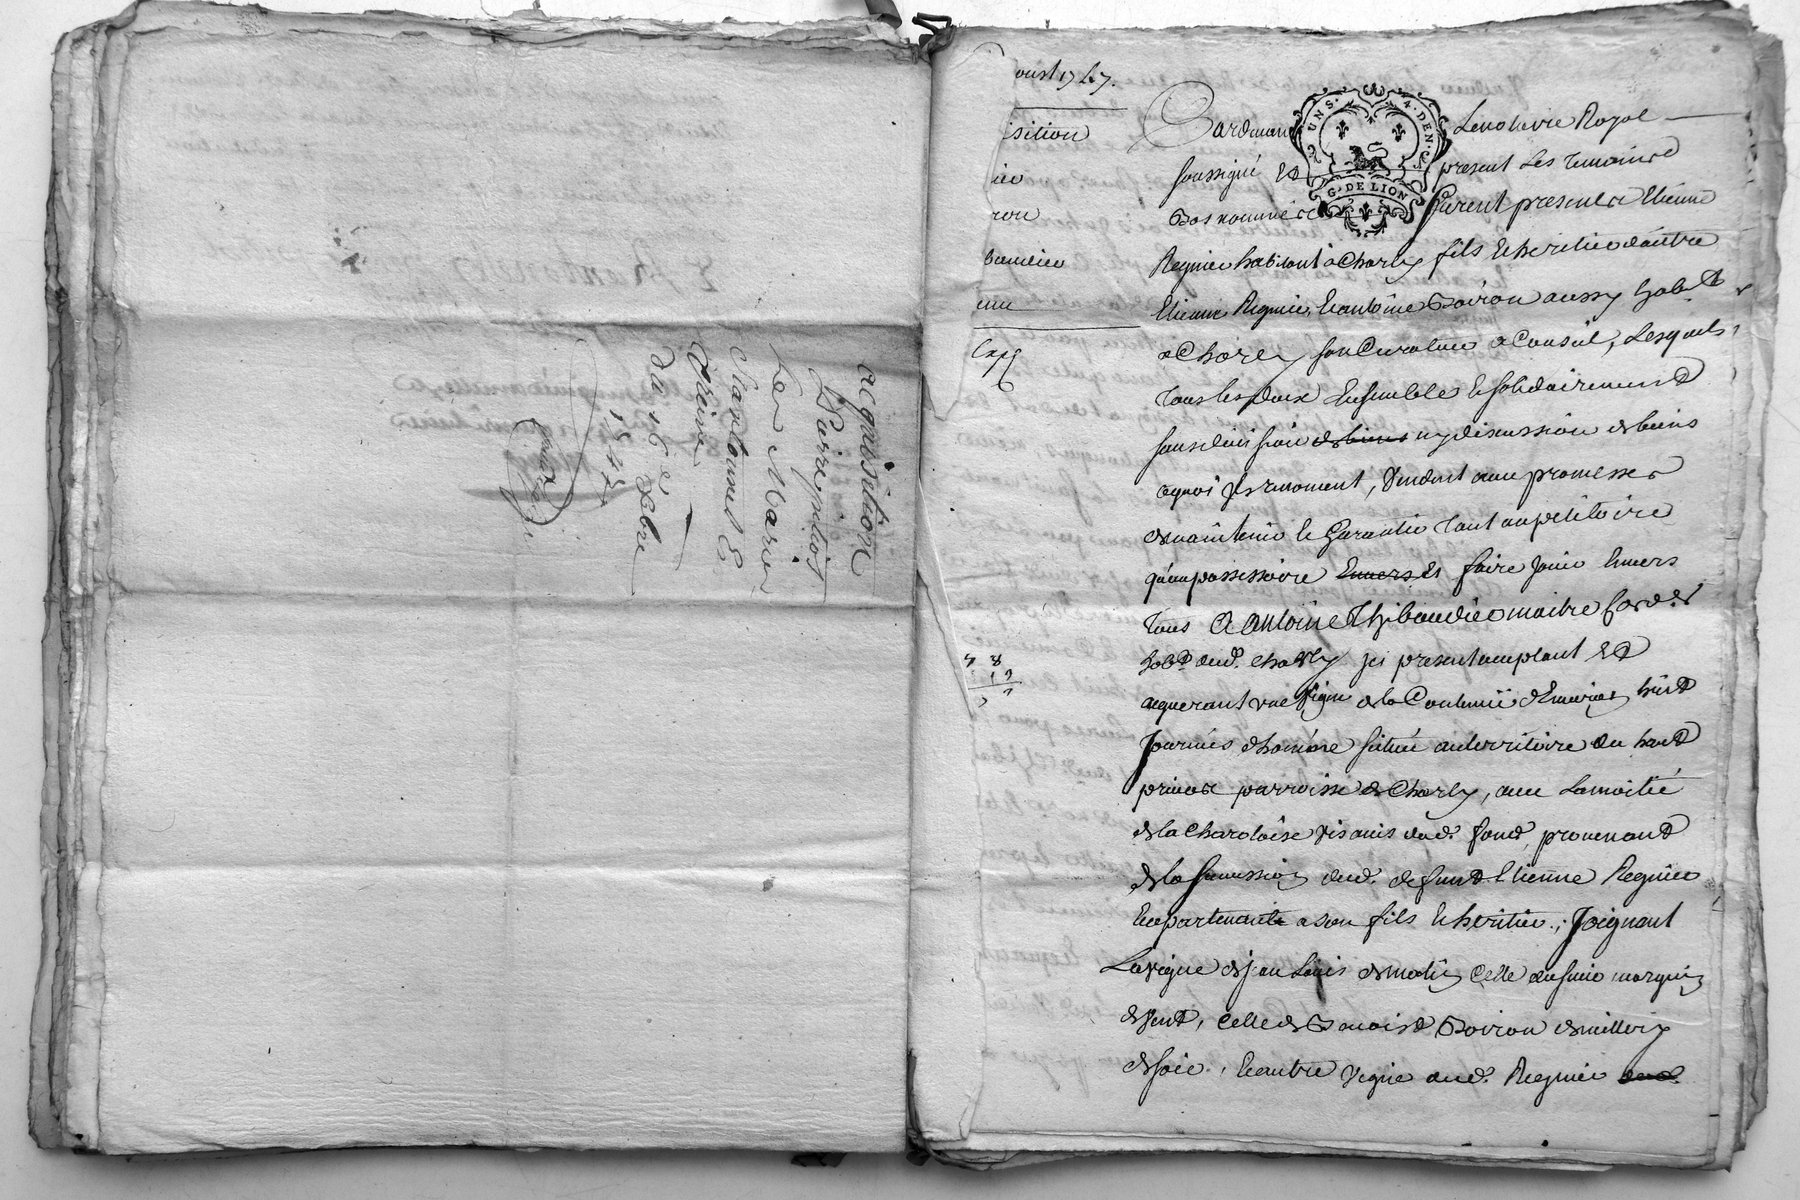 acquisition
Les Maries
Du 16 8bre
1745
oust 1747.
isition
ieu
ron
baudieu
enne
Expé
UNS. 4. DEN.
G. DE LION
Pardevant Le notaire Royal
soussigné et present Les temoins
Bas nommés furent presents Etienne
Regnier habitant a Charly fils et heritier d'autre
Etienne Regnier, et antoine Boiron aussy hab.t
a Charly son Curateur a Conseil, Lesquels
tous les deux ensemble et solidairement
sans division ny discussion de biens
a quoi ils renoncent, vendent avec promesse
de maintenir et garantir tant au petitoire
qu'au possessoire et faire jouir envers
tous a antoine Thibaudier maitre
hab.t aud. Charly ici present acceptant et
acquerant une vigne de la Contenue d'environ huit
journées d'homme située au territoire du haut
parroisse de Charly, avec La moitié
de la Charoloise vis avis dud. fond, provenant
de la succession dud. defunt Etienne Regnier
et apartenante a son fils et heritier; Joignant
La vigne de jean Louis de matin Celle du sieur
de vent, Celle de Benoist Boiron de millery
de soir, et autre vigne dud. Regnier